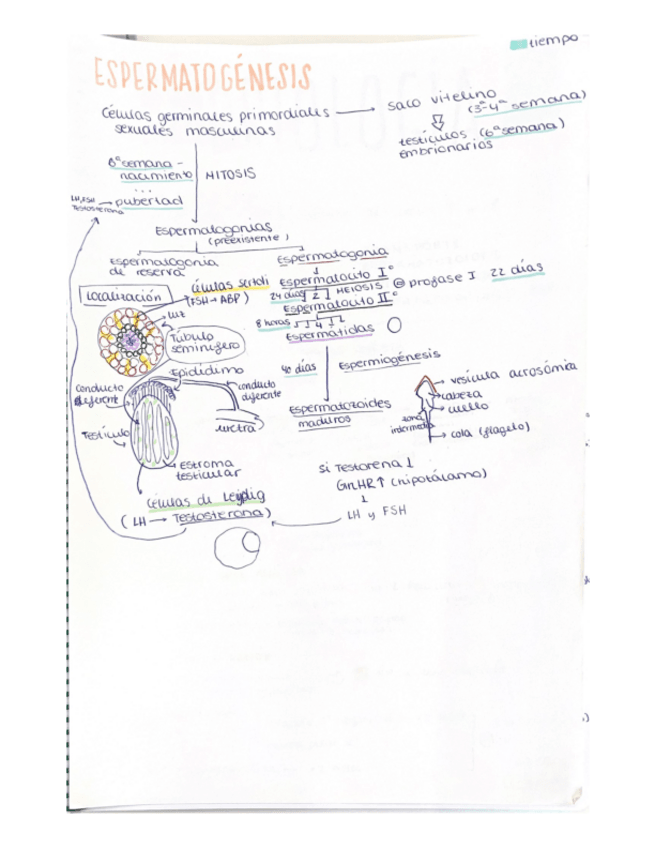 tiempo
ESPERMATOGÉNESIS
Células germinales primordiales
sexuales masculinas
saco vitelino
(3ª-4ª semana)
testículos (6ª semana)
embrionarios
6ª semana -
nacimiento
...
pubertad
MITOSIS
LH, FSH
Testosterona
Espermatogonias
(preexistente)
Espermatogonia
de reserva
Espermatogonia
Localización
células sertoli
(FSH → ABP)
Espermatocito I°
24 días 2 MEIOSIS profase I 22 días
Espermatocito II°
8 horas 4
Espermátidas
luz
Túbulo
seminífero
Epidídimo
Conducto
deferente
conducto
diferente
uretra
Testículo
Estroma
testicular
40 días
Espermiogénesis
Espermatozoides
maduros
vesícula acrosómia
cabeza
cuello
zona
intermedia
cola (flagelo)
Células de Leydig
(LH → Testosterona)
Si Testorena ↓
GnHR ↑ (hipotálamo)
↓
LH y FSH